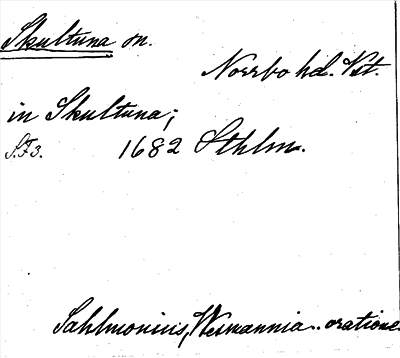 Skultuna sn.
Norrbo hd. Vst.
in Skultuna;
S.F3. 1682 Sthlm.
Sahlmonius, Wesmannia.. oratione